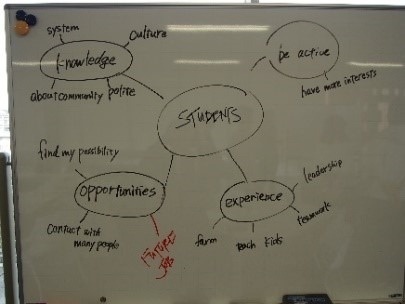 system
culture
knowledge
about community
polite
be active
have more interests
STUDENTS
find my possibility
opportunities
contact with
many people
FUTURE
JOB
experience
leadership
teamwork
farm
teach kids